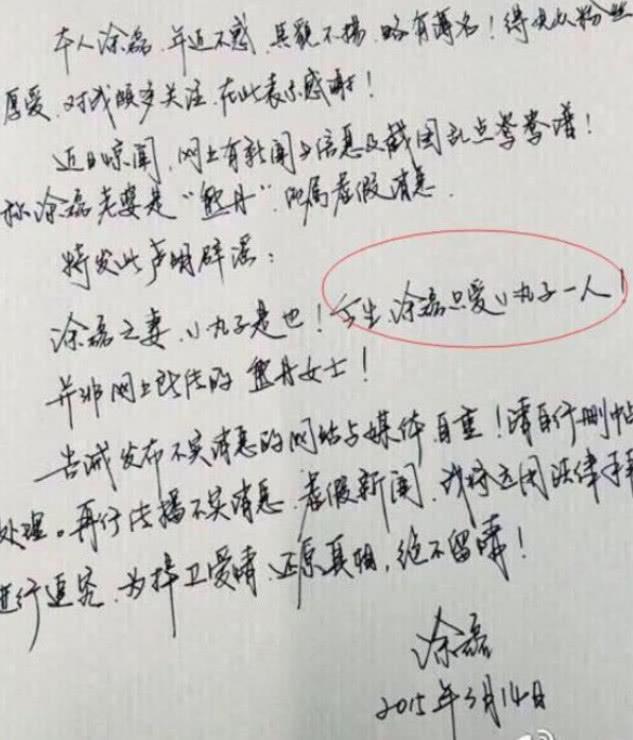 本人涂磊,年近不惑,其貌不扬,略有薄名!得大众粉丝
厚爱,对我颇多关注,在此表示感谢!
近日惊闻,网上有新闻与信息及截图乱点鸳鸯谱!
称涂磊老婆是“甄丹”,纯属虚假消息.
特发此声明辟谣:
涂磊之妻,小丸子是也!今生,涂磊只爱小丸子一人!
并非网上所传的 甄丹女士!
告诫发布不实消息的网站与媒体自重!请自行删帖
处理。再行传播不实消息、虚假新闻,我将运用法律手
进行追究,为捍卫爱情,还原真相,绝不留情!
涂磊
2015年3月14日